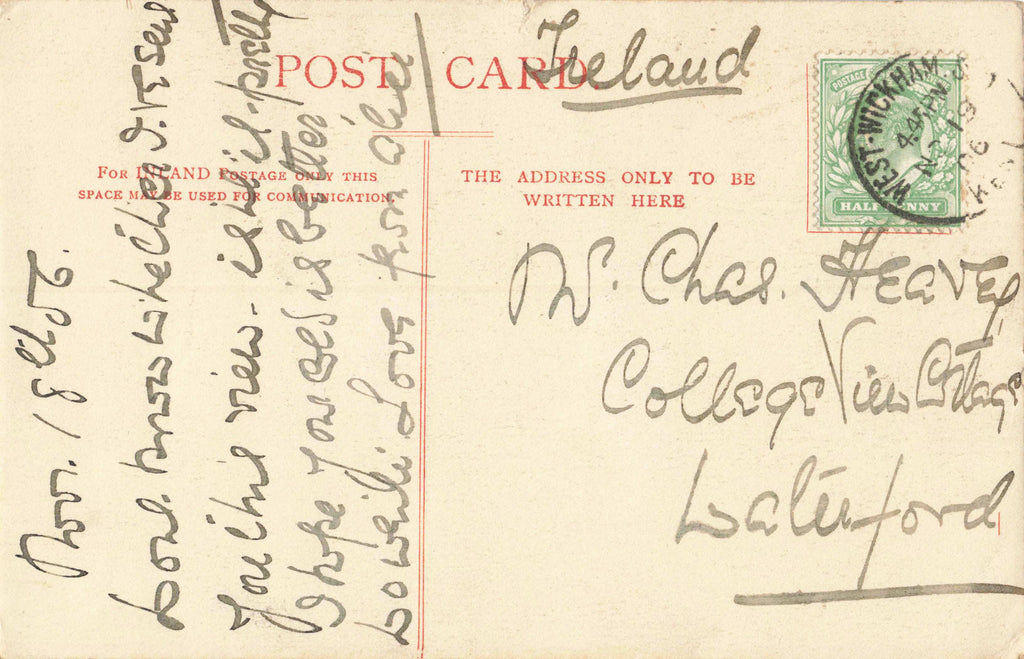 POST CARD.
Ireland
FOR INLAND POSTAGE ONLY THIS
SPACE MAY BE USED FOR COMMUNICATION.
THE ADDRESS ONLY TO BE
WRITTEN HERE
POSTAGE
HALFPENNY
WEST-WICKHAM S.O
4 45 PM
NO 19
06
KENT
Mr. Chas. Heavey
College View Cottage
Waterford
Nov. 18th 06.
Dont know whether I. v sent
You this view - isnt it pretty
I hope Your is better,
to write. Love from